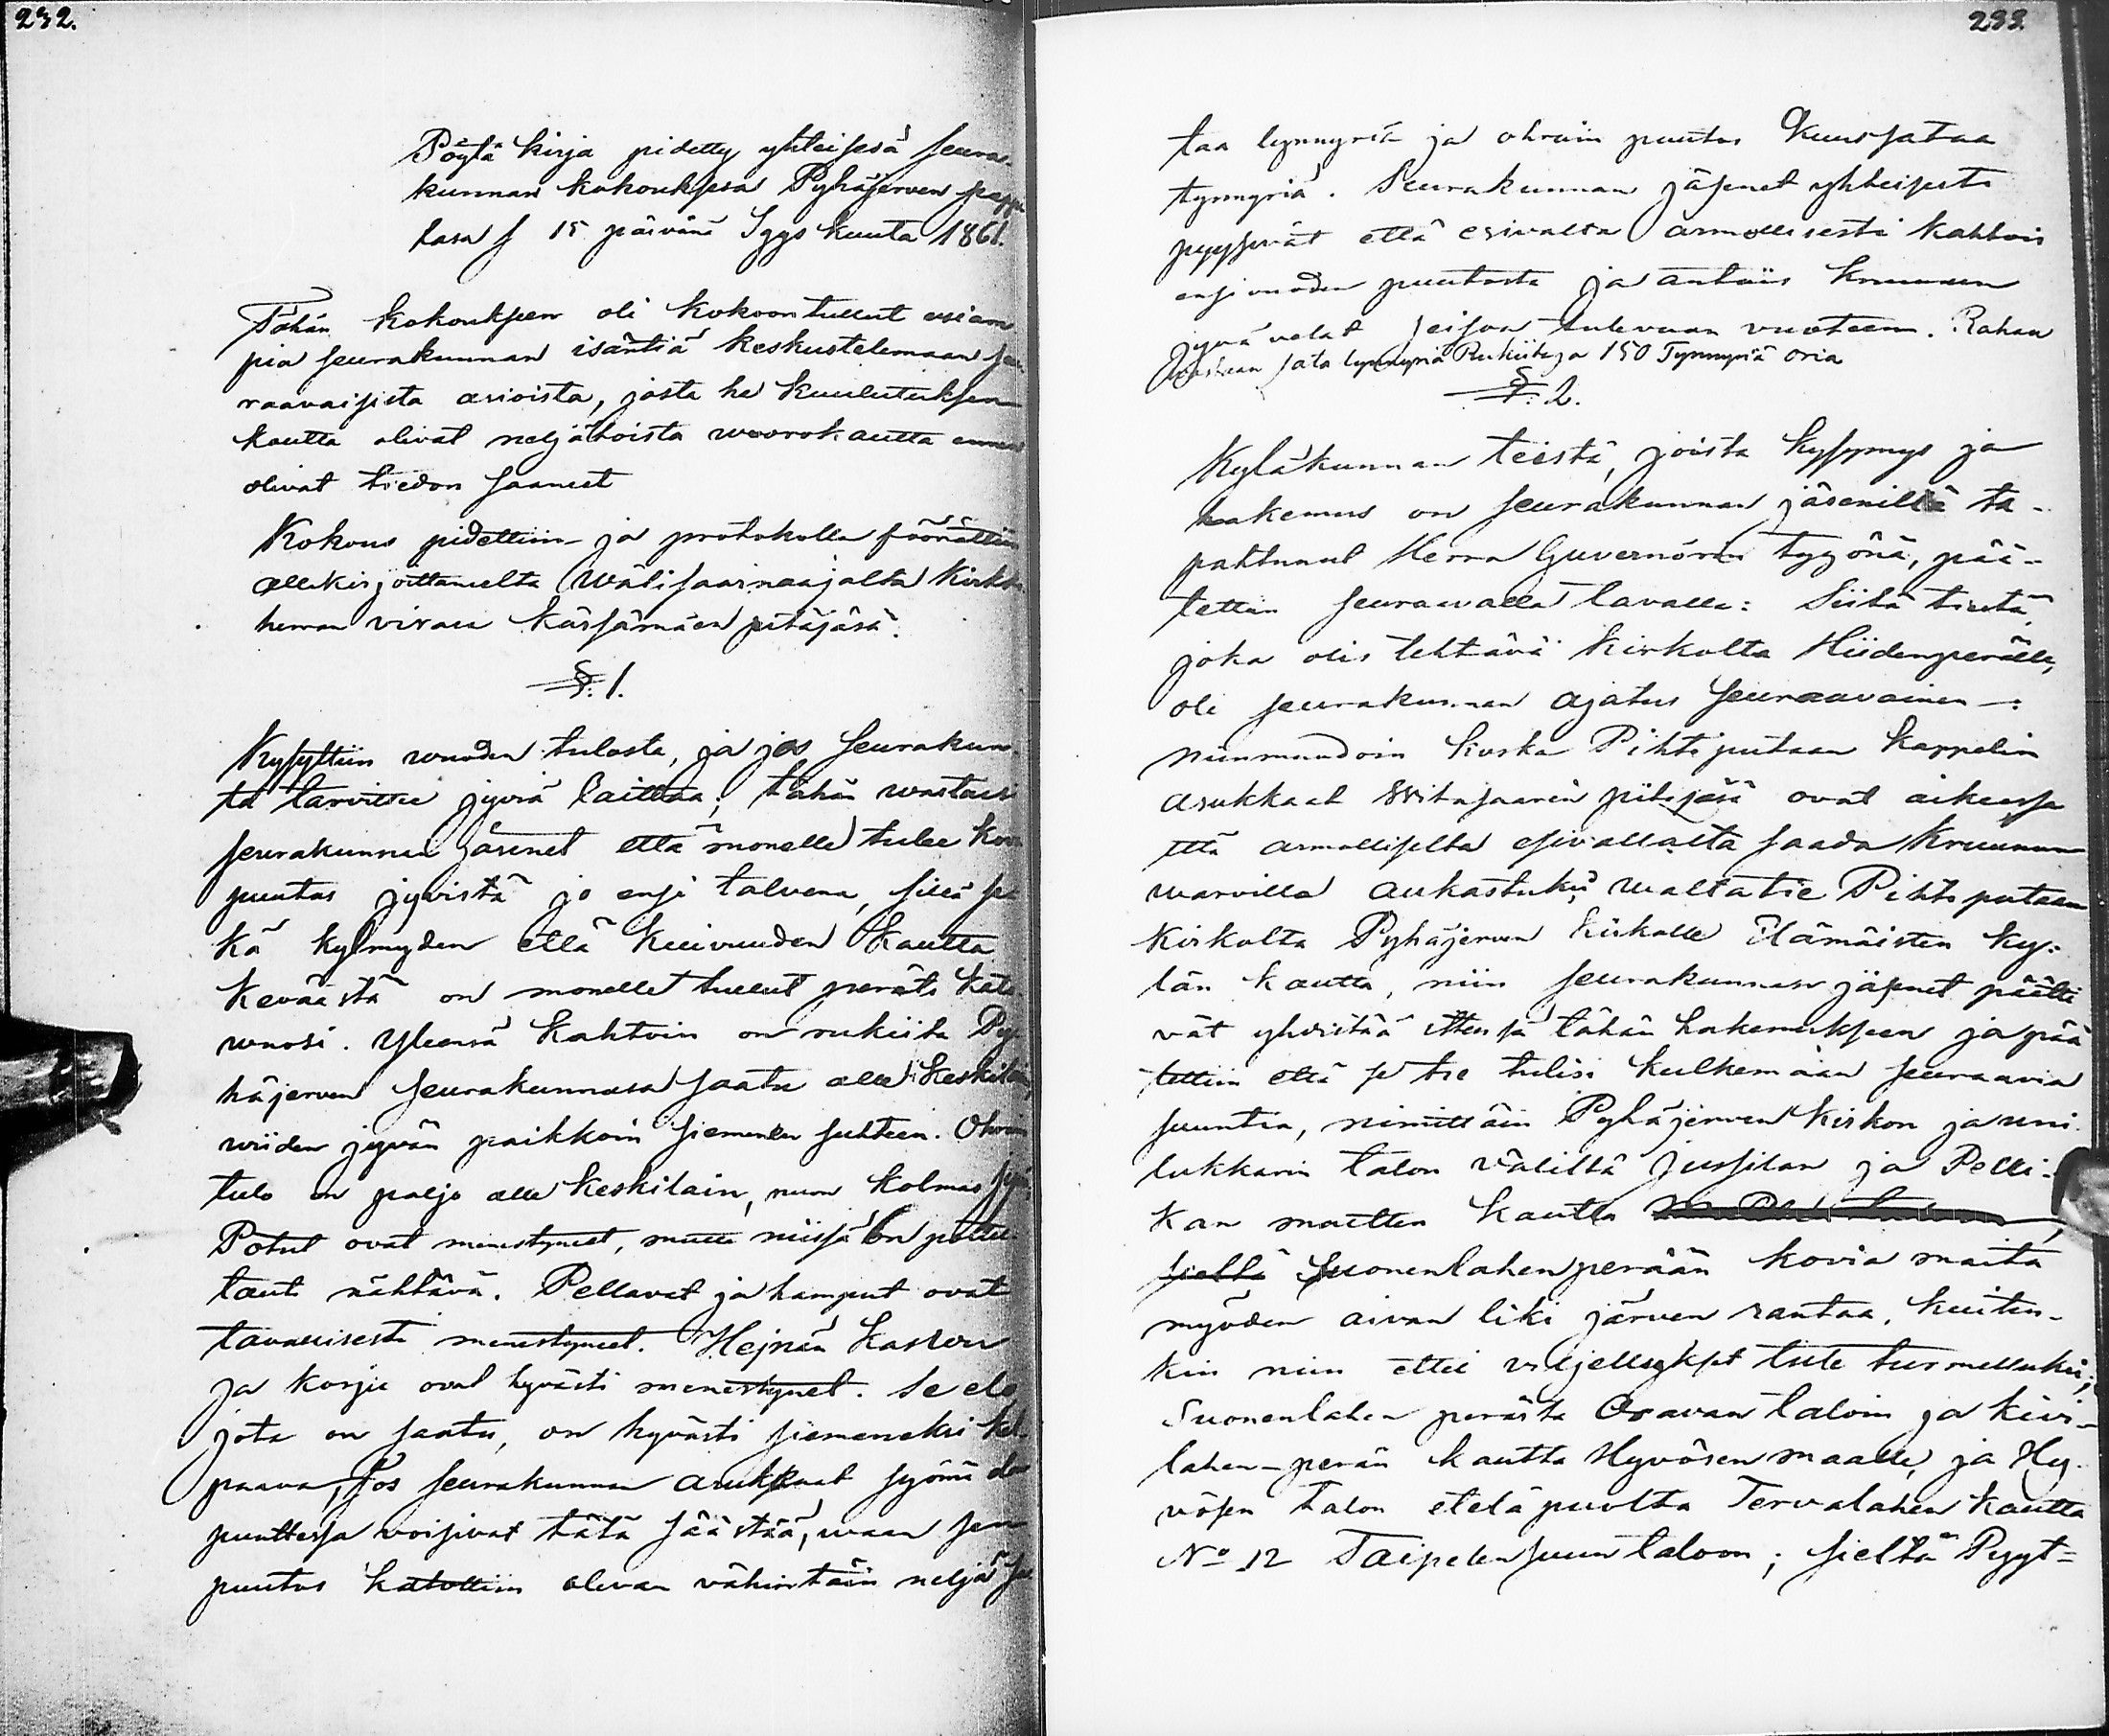 232.
Pöytä kirja pidetty yhteisesä seura-
kunnan kokouksesa Pyhäjerven pappi
lasa s 15 päivänä Syys kuuta 1861.
Tähän kokouksen oli kokoontullut usiam
pia seurakunnan isäntiä keskustelemaan seu
raavaisista asioista, josta he kuulutuksen
kautta olivat neljätoista wuorokautta ennen
olivat tiedon saaneet
Kokous pidettiin ja protokolla föörättiin
allekirjoittaneelta Wälisaarnaajalta Kirkko
herran viraa Kärsämäen pitäjäsä.
§: 1.
Kysyttiin wuoden tulosta, ja jos seurakun
ta tarvitsee jyviä laittaa; tähän wastaisi
seurakunnan jäsenet että monelle tulee kova
puutos jyvistä jo ensi talvena, sillä se
kä kylmyden että kuivuuden kautta
keväästä on monelle tullut peräti kato
wuosi. Yleensä kahtoin on rukiita Py
häjerven seurakunnasa saatu alle keskilain,
wiiden jyvän paikkoin siemenen suhteen. Ohrain
tulo on paljo alle keskilain, nuon kolmas jyvä
Potut ovat menestyneet, mutta niissä on pottu-
taut nähtävä. Pellavat ja hamput ovat
tavallisesti menestyneet. Hejnän kasvu
ja korjuu ovat hyvästi menestynet. Se elo
jota on saatu, on hyvästi siemeneksi kel-
paava, Jos seurakunnan asukkaat syömä elo
puuttessa voisivat tätä säästää, waan sen
puutos katottiin olevan vähintäin neljä sa
233
taa tynnyriä ja ohrain puutos kuussataa
tynnyriä. Seurakunnan jäsenet yhteisesti
pyysivät että esivalta armollisesti kahtois
ensivuoden puutosta ja antais kruunun
jyvä velat seisoa tulevaan vuoteen. Rahan
wastaan sata tynnyriä Rukiita ja 150 Tynnyriä oria
§: 2.
Kyläkunnan teistä, joista kysymys ja
hakemus on seurakunnan jäsenillä ta-
pahtunut Herra Guvernörin tyyönä, pää-
tettiin seuraavalla tavalla: Siitä tiestä,
joka olis tehtävä kirkolta Hiidenperälle,
oli seurakunnan ajatus seuraavainen -:
niinmuodoin koska Pihtiputaan kappelin
asukkaat Witasaaren pitäjäsä ovat aikeessa
että armolliselta esivallalta saada kruunun
warvilla aukastuksi waltatie Pihtiputaan
kirkolta Pyhäjerven kirkolle Elämäisten ky-
län kautta, niin seurakunnan jäsenet päätti
vät yhdistää ittensä tähän hakemukseen ja pää
tettiin että se tie tulisi kulkemaan seuraavia
suuntia, nimittäin Pyhäjerven kirkon ja uni
lukkarin talon väliltä Jussilan ja Pelli-
kan maitten kautta
sieltä Suonenlahen perään kovia maita
myöden aivan liki järven rantaa, kuiten-
kin niin ettei viljellykset tule turmelluksi;
Suonenlahen perästä Oravan taloin ja kivi-
lahen-perän kautta Hyvösen maalle, ja Hy-
vösen talon etelä puolta Tervalahen kautta
No 12 Taipelensuun taloon; sieltä Pyyt=